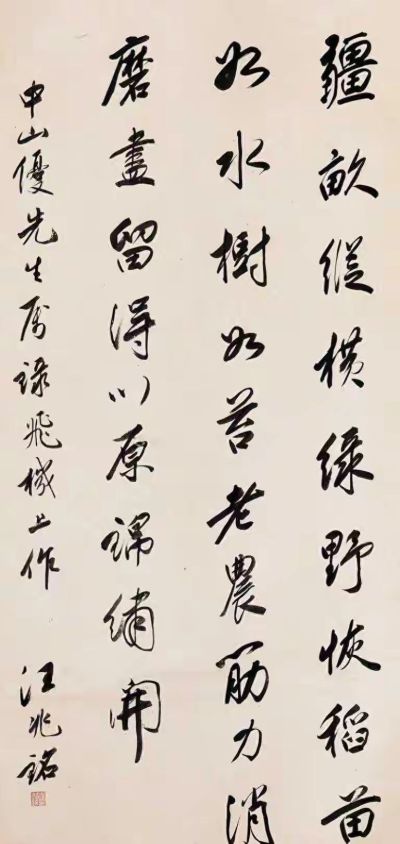 疆畝縱橫綠野恢稻苗
如水樹如苔老農筋力消
磨盡留得川原錦繡開
中山優先生属錄飛機上作 汪兆銘